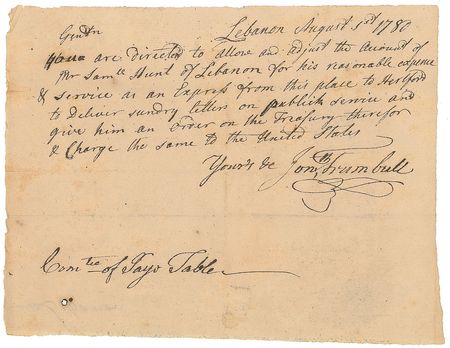 Lebanon August 1st 1780
Gentn
you are directed to allow and adjust the Account of
Mr Samll Hunt of Lebanon for his reasonable expence
& service as an Express from this place to Hertford
to deliver sundry letters on publick service and
give him an order on the Treasury therefor
& Charge the same to the United States
Yours &c Jonth Trumbull
Comtee of Pays Table